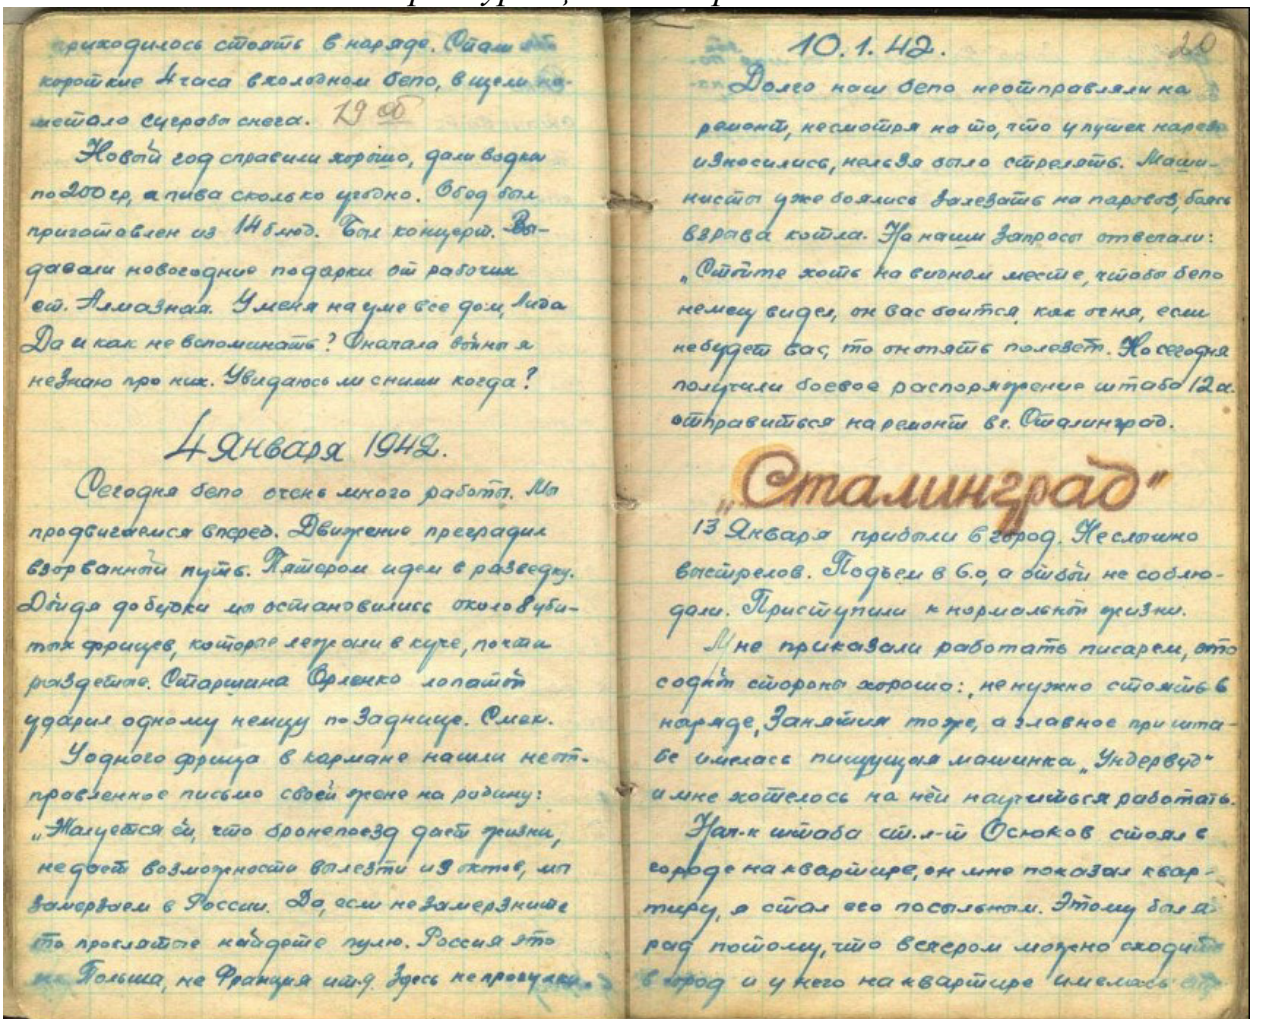 приходилось стоять в наряде. Спали
короткие 4 часа в холодном бепо, в щели на-
метало сугробы снега. 19 об
Новый год справили хорошо, дали водки
по 200 гр, а пива сколько угодно. Обед был
приготовлен из 14 блюд. Был концерт. Вы-
давали новогодние подарки от рабочих
ст. Алмазная. У меня на уме все дом, Лида
Да и как не вспоминать? Сначала войны я
не знаю про них. Увидаюсь ли с ними когда?
4 Января 1942.
Сегодня бепо очень много работы. Мы
продвигаемся вперед. Движение преградил
взорванный путь. Пятером идем в разведку.
Дойдя до будки мы остановились около 8 уби-
тых фрицев, которые лежали в куче, почти
раздетые. Старшина Орленко лопатой
ударил одному немцу по заднице. Смех.
У одного фрица в кармане нашли неот-
правленное письмо своей жене на родину:
„Жалуется ей, что бронепоезд дает жизни,
не дает возможности вылезти из окопов, мы
замерзаем в России. Да, если не замерзните
то проклятые найдете пулю. Россия это
не Польша, не Франция и т.д. Здесь не прогулки.
10.1.42.
20
Долго наш бепо не отправляли на
ремонт, несмотря на то, что у пушек нарезы
износились, нельзя было стрелять. Маши-
нисты уже боялись залезать на паровоз, боясь
взрыва котла. На наши запросы отвечали:
„Стойте хоть на видном месте, чтобы бепо
немец видел, он вас боится, как огня, если
не будет вас, то он опять полезет. Но сегодня
получили боевое распоряжение штаба 12 а.
отправиться на ремонт в г. Сталинград.
„Сталинград"
13 Января прибыли в город. Не слышно
выстрелов. Подъем в 6.0, а отбой не соблю-
дали. Приступили к нормальной жизни.
Мне приказали работать писарем, это
с одной стороны хорошо:, не нужно стоять в
наряде, занятия тоже, а главное при шта-
бе имелась пишущая машинка „Ундервуд"
и мне хотелось на ней научиться работать.
Нач-к штаба ст. л-т Осюков стоял в
городе на квартире, он мне показал квар-
тиру, я стал его посыльным. Этому был я
рад потому, что вечером можно сходить
в город и у него на квартире имелась